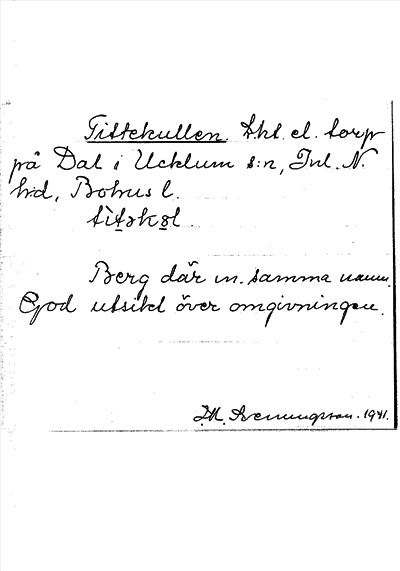 Tittekullen. Lht. el. torp
på Dal i Ucklum s:n, Inl. N.
hrd, Bohus l.
titəkəl.
Berg där m. samma namn.
God utsikt över omgivningen.
1941.